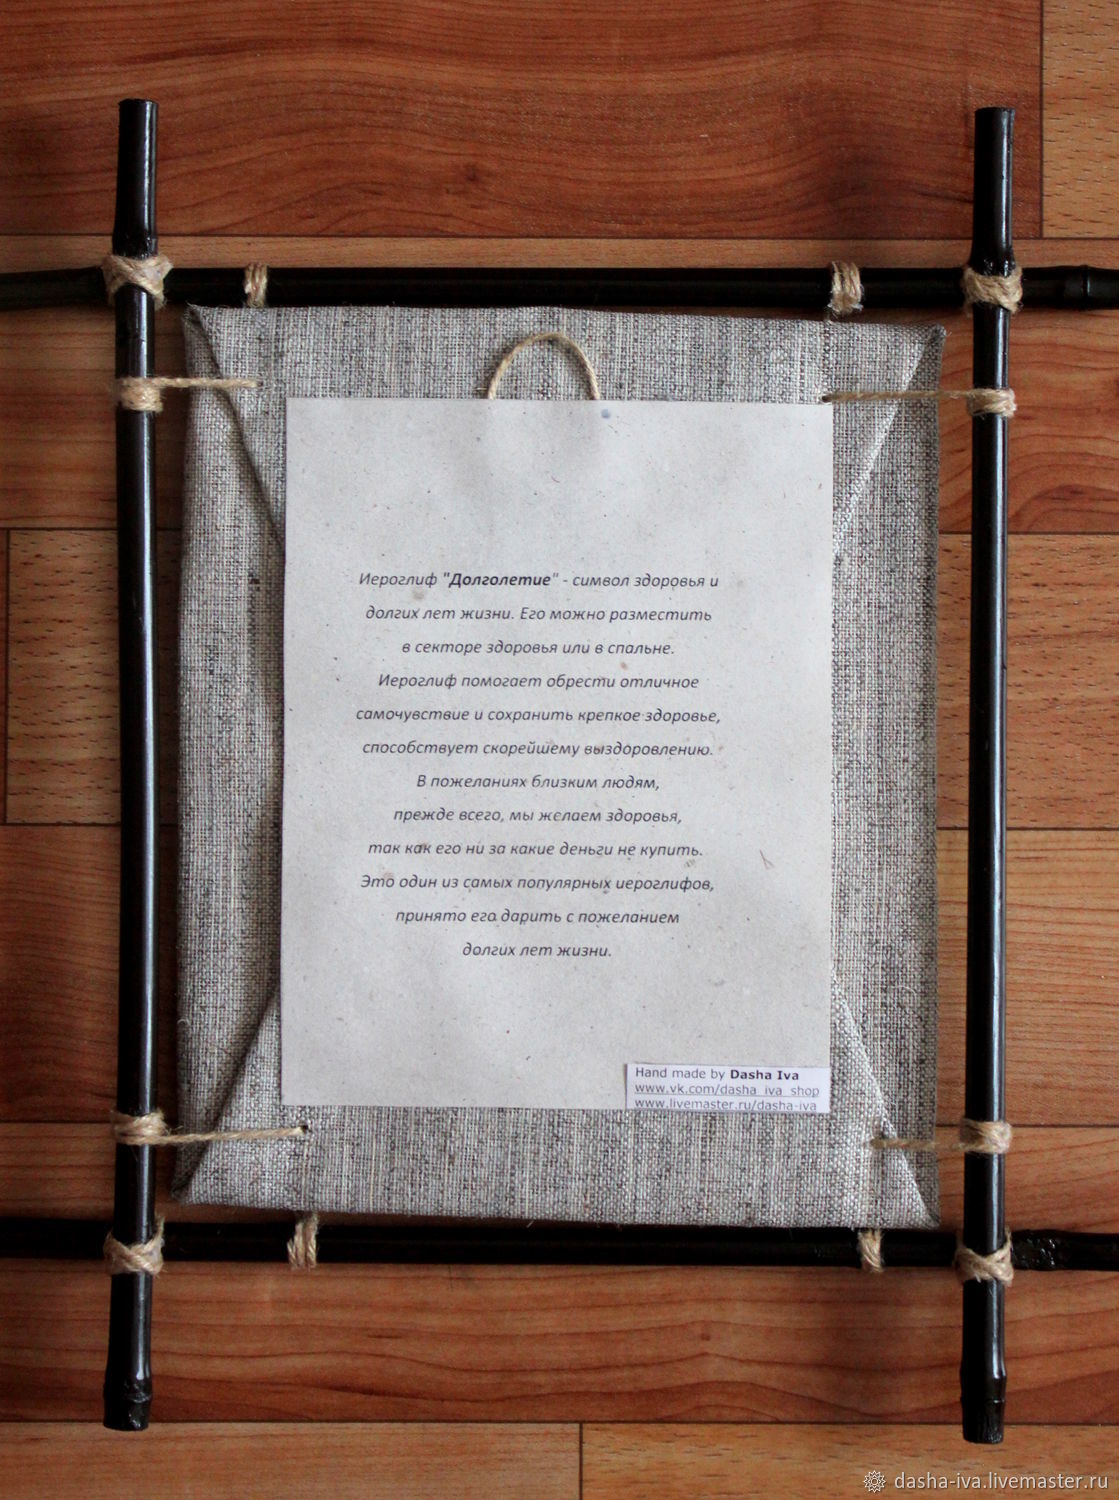 Иероглиф "Долголетие" - символ здоровья и
долгих лет жизни. Его можно разместить
в секторе здоровья или в спальне.
Иероглиф помогает обрести отличное
самочувствие и сохранить крепкое здоровье,
способствует скорейшему выздоровлению.
В пожеланиях близким людям,
прежде всего, мы желаем здоровья,
так как его ни за какие деньги не купить.
Это один из самых популярных иероглифов,
принято его дарить с пожеланием
долгих лет жизни.
Hand made by Dasha Iva
www.vk.com/dasha_iva_shop
www.livemaster.ru/dasha-iva
dasha-iva.livemaster.ru